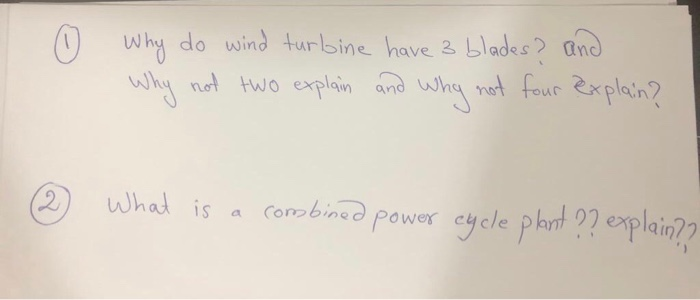 ① Why do wind turbine have 3 blades? and
Why not two explain and why not four explain?
② What is a combined power cycle plant ?? explain??